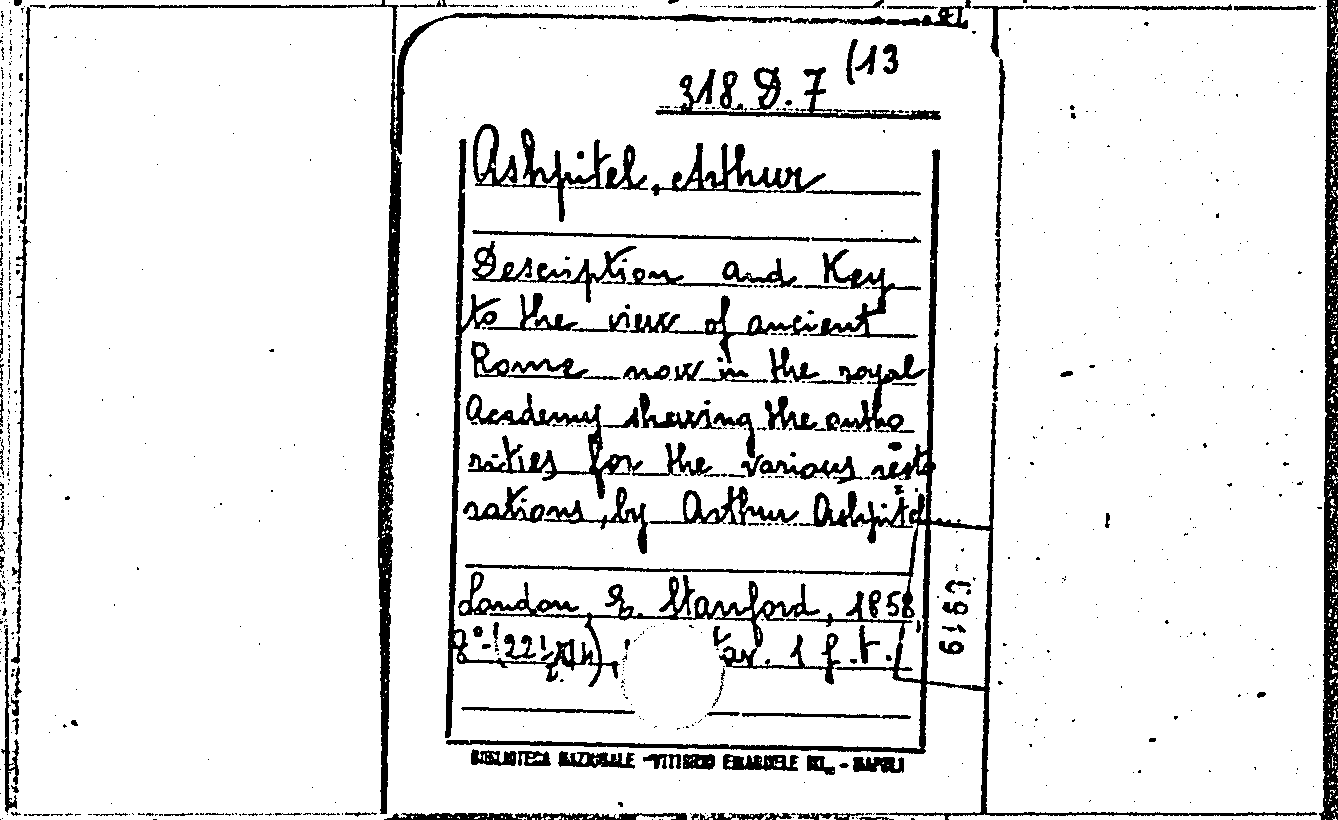 318. D. 7 (13
Ashpitel, Arthur
Description and Key
to the view of ancient
Rome now in the royal
Academy shewing the autho
rities for the various resto
rations, by Arthur Ashpitel
London, E. Stanford, 1858,
8°-(22
tav. 1 f.t.
6163
BIBLIOTECA NAZIONALE "VITTORIO EMANUELE III" - NAPOLI